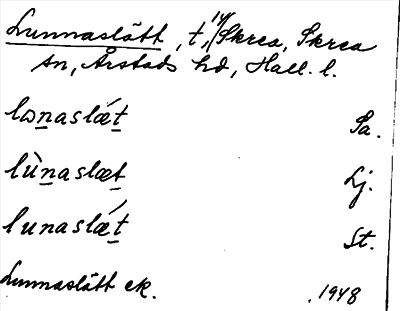 Lunnaslätt, t, 14/Skrea, Skrea
sn, Årstads hd, Hall. l.
lɔnaslǽt Sa.
lùnaslæt Lj.
lunaslǽt St.
Lunnaslätt ek. .1948